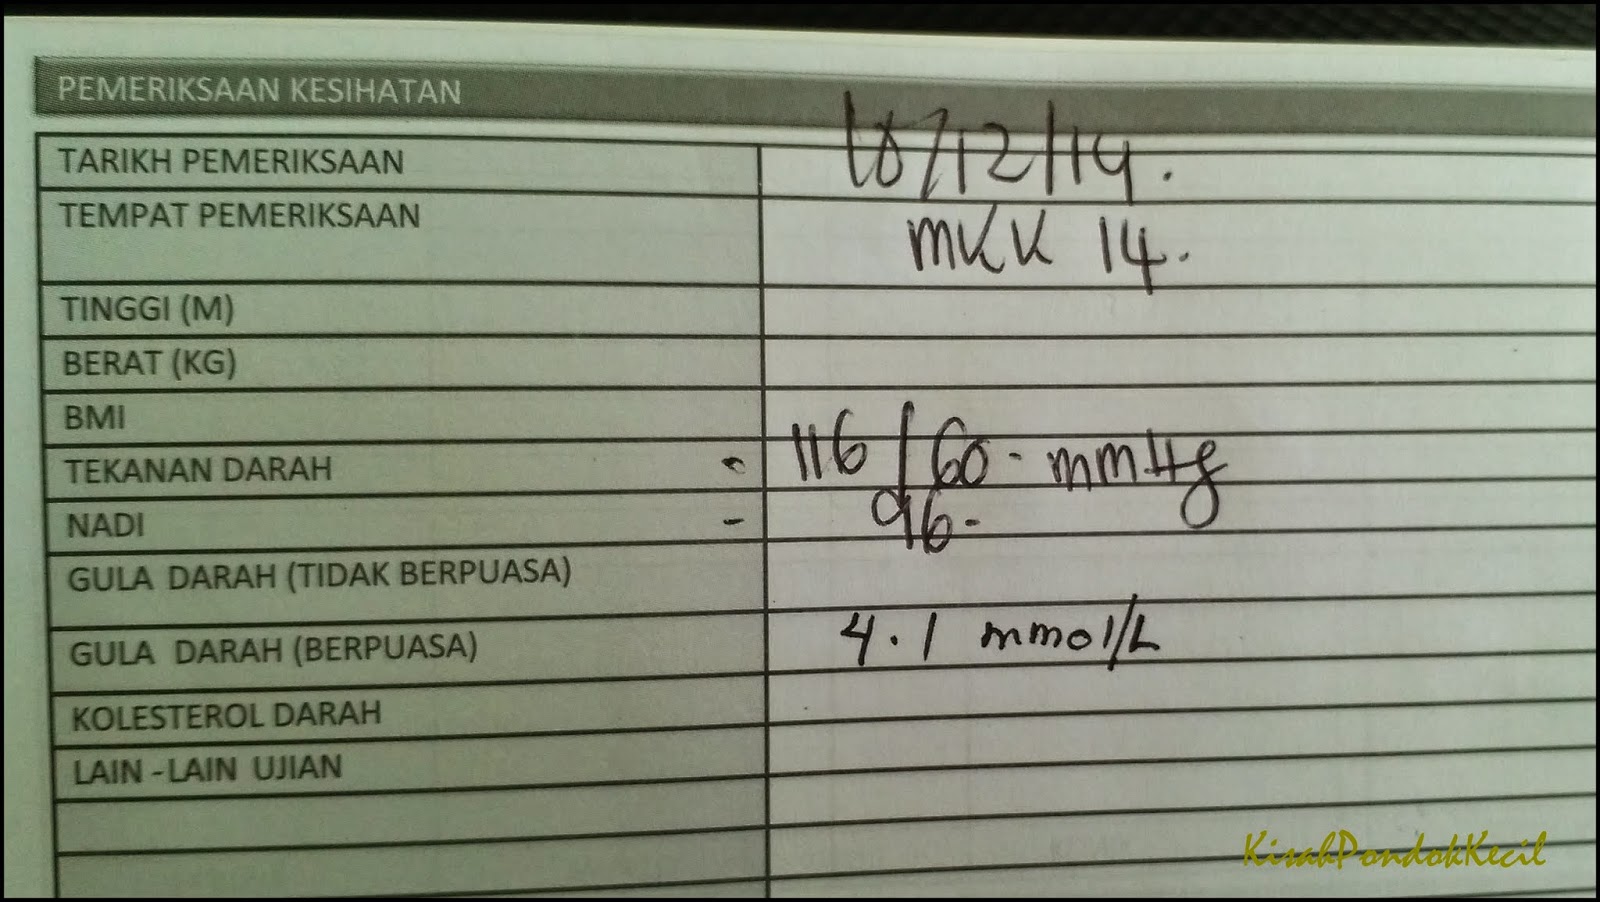 PEMERIKSAAN KESIHATAN
TARIKH PEMERIKSAAN 18/12/14.
TEMPAT PEMERIKSAAN MKK 14.
TINGGI (M)
BERAT (KG)
BMI
TEKANAN DARAH - 116/60 - mmHg
NADI - 96 -
GULA DARAH (TIDAK BERPUASA)
GULA DARAH (BERPUASA) 4.1 mmol/L
KOLESTEROL DARAH
LAIN -LAIN UJIAN
KisahPondokKecil